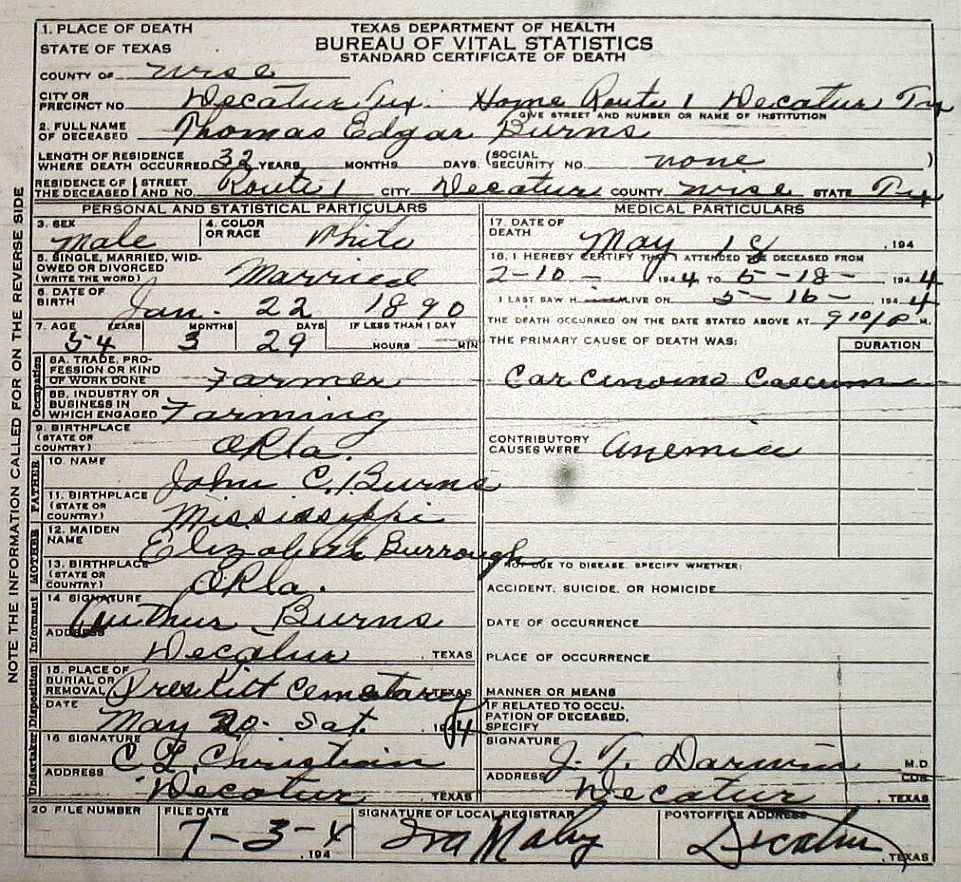 1. PLACE OF DEATH
STATE OF TEXAS
TEXAS DEPARTMENT OF HEALTH
BUREAU OF VITAL STATISTICS
STANDARD CERTIFICATE OF DEATH
COUNTY OF Wise
CITY OR PRECINCT NO. Decatur Tx. Home Route 1 Decatur Tx
GIVE STREET AND NUMBER OR NAME OF INSTITUTION
2. FULL NAME OF DECEASED Thomas Edgar Burns
LENGTH OF RESIDENCE WHERE DEATH OCCURRED 32 YEARS MONTHS DAYS (SOCIAL SECURITY NO. none )
RESIDENCE OF THE DECEASED STREET AND NO. Route 1 CITY Decatur COUNTY Wise STATE Tx
NOTE THE INFORMATION CALLED FOR ON THE REVERSE SIDE
PERSONAL AND STATISTICAL PARTICULARS
3. SEX Male
4. COLOR OR RACE White
5. SINGLE, MARRIED, WIDOWED OR DIVORCED (WRITE THE WORD) Married
6. DATE OF BIRTH Jan. 22 1890
7. AGE YEARS MONTHS DAYS IF LESS THAN 1 DAY
54 3 29 HOURS MIN
Occupation
8A. TRADE, PROFESSION OR KIND OF WORK DONE Farmer
8B. INDUSTRY OR BUSINESS IN WHICH ENGAGED Farming
9. BIRTHPLACE (STATE OR COUNTRY) Okla.
FATHER
10. NAME John C. Burns
11. BIRTHPLACE (STATE OR COUNTRY) Mississippi
MOTHER
12. MAIDEN NAME Elizabeth Burrough
13. BIRTHPLACE (STATE OR COUNTRY) Okla.
Informant
14 SIGNATURE Authur Burns
ADDRESS Decatur, TEXAS
Disposition
15. PLACE OF BURIAL OR REMOVAL Preskitt Cemetary TEXAS
DATE May 20. Sat. 194 4
Undertaker
16 SIGNATURE C L Christian
ADDRESS Decatur, TEXAS
MEDICAL PARTICULARS
17. DATE OF DEATH May 18, 194
18. I HEREBY CERTIFY THAT I ATTENDED THE DECEASED FROM
2-10- 1944 TO 5-18- 1944
I LAST SAW H im ALIVE ON 5-16- 1944
THE DEATH OCCURRED ON THE DATE STATED ABOVE AT 9 10/P M.
THE PRIMARY CAUSE OF DEATH WAS: DURATION
Carcinoma Caecum
CONTRIBUTORY CAUSES WERE Anemia
IF NOT DUE TO DISEASE, SPECIFY WHETHER:
ACCIDENT, SUICIDE, OR HOMICIDE
DATE OF OCCURRENCE
PLACE OF OCCURRENCE
MANNER OR MEANS
IF RELATED TO OCCUPATION OF DECEASED, SPECIFY
SIGNATURE J. T. Darwin M.D.
COR.
ADDRESS Decatur, TEXAS
20 FILE NUMBER
FILE DATE 7-3-4, 194
SIGNATURE OF LOCAL REGISTRAR Iva Maby
POSTOFFICE ADDRESS Decatur, TEXAS